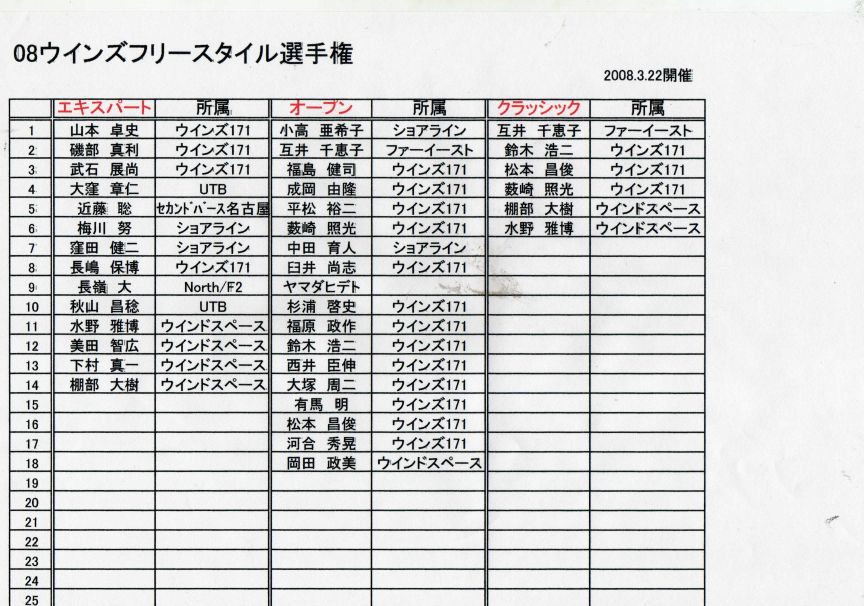 08ウインズフリースタイル選手権
2008.3.22開催
エキスパート 所属 オープン 所属 クラッシック 所属
1 山本 卓史 ウインズ171 小高 亜希子 ショアライン 互井 千恵子 ファーイースト
2 磯部 真利 ウインズ171 互井 千恵子 ファーイースト 鈴木 浩二 ウインズ171
3 武石 展尚 ウインズ171 福島 健司 ウインズ171 松本 昌俊 ウインズ171
4 大窪 章仁 UTB 成岡 由隆 ウインズ171 薮崎 照光 ウインズ171
5 近藤 聡 セカンドバース名古屋 平松 裕二 ウインズ171 棚部 大樹 ウインドスペース
6 梅川 努 ショアライン 薮崎 照光 ウインズ171 水野 雅博 ウインドスペース
7 窪田 健二 ショアライン 中田 育人 ショアライン
8 長嶋 保博 ウインズ171 臼井 尚志 ウインズ171
9 長嶺 大 North/F2 ヤマダヒデト
10 秋山 昌稔 UTB 杉浦 啓史 ウインズ171
11 水野 雅博 ウインドスペース 福原 政作 ウインズ171
12 美田 智広 ウインドスペース 鈴木 浩二 ウインズ171
13 下村 真一 ウインドスペース 西井 臣伸 ウインズ171
14 棚部 大樹 ウインドスペース 大塚 周二 ウインズ171
15 有馬 明 ウインズ171
16 松本 昌俊 ウインズ171
17 河合 秀晃 ウインズ171
18 岡田 政美 ウインドスペース
19
20
21
22
23
24
25